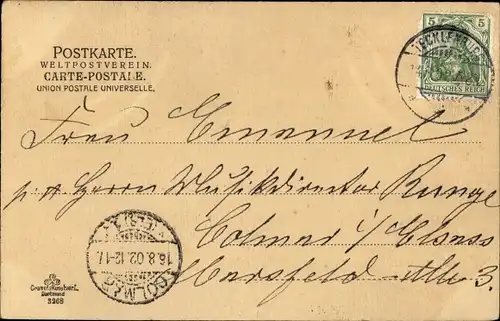 POSTKARTE.
WELTPOSTVEREIN.
CARTE-POSTALE.
UNION POSTALE UNIVERSELLE.
5 5
DEUTSCHES REICH
TECKLENBURG
Frau Emanuel
p. a. Herrn Musikdirektor Runge
Colmar i/Elsass
Marsfeld Allee 3.
16.8.02.12-1
COLMAR
Dortmund
3268